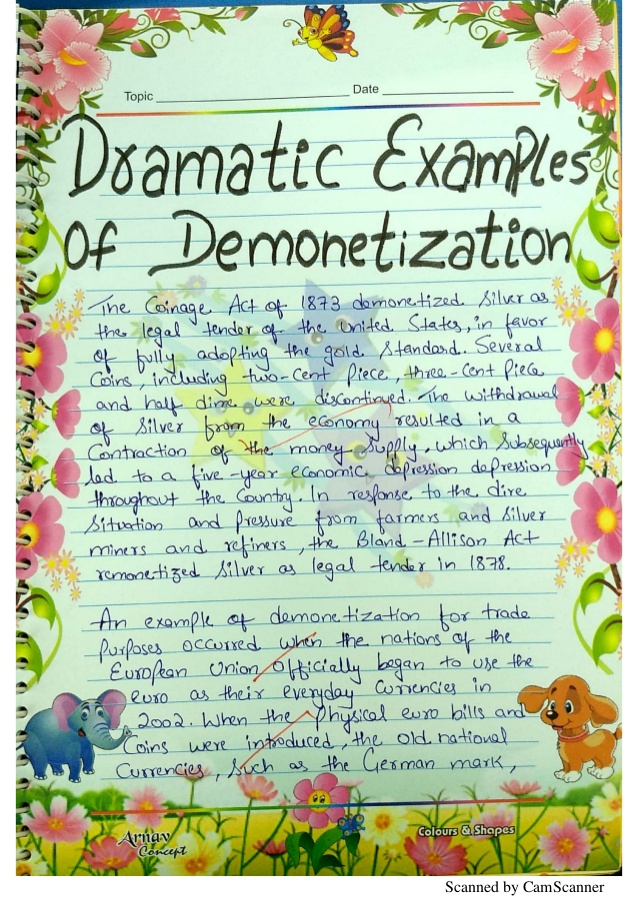 Topic
Date
Dramatic Examples
Of Demonetization
The Coinage Act of 1873 demonetized Silver as
the legal tender of the United States, in favor
of fully adopting the gold Standard. Several
Coins, including two-cent Piece, three-cent Piece
and half dime were discontinued. The withdrawal
of Silver from the economy resulted in a
Contraction of the money Supply, which Subsequently
led to a five-year economic depression depression
throughout the Country. In response to the dire
Situation and Pressure from farmers and Silver
miners and refiners, the Bland-Allison Act
remonetized Silver as legal tender in 1878.
An example of demonetization for trade
Purposes occurred when the nations of the
European Union Officially began to use the
euro as their everyday Currencies in
2002. When the Physical euro bills and
Coins were introduced, the old national
Currencies, Such as the German mark,
Arnav
Concept
Colours & Shapes
Scanned by CamScanner